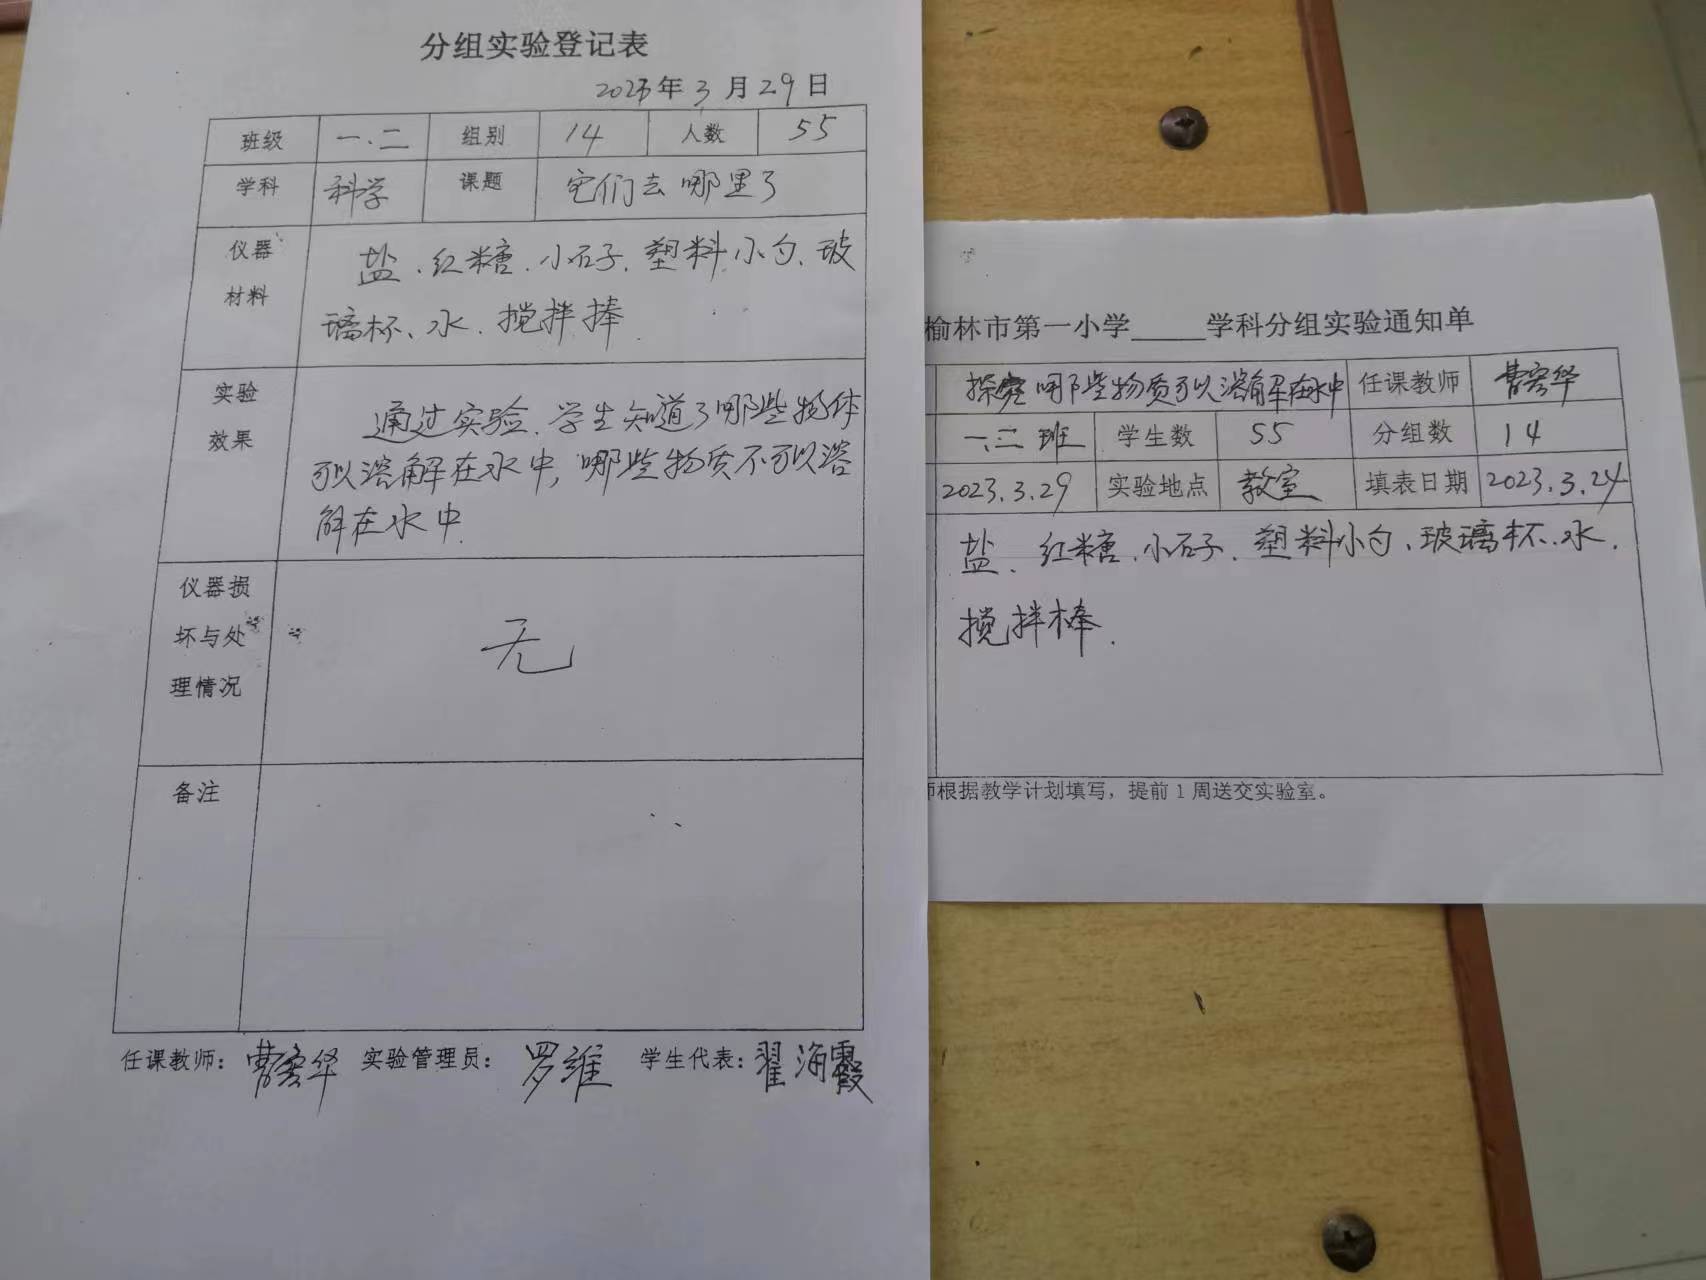 分组实验登记表
2023年3月29日
班级 一.二 组别 14 人数 55
学科 科学 课题 它们去哪里了
仪器材料 盐、红糖、小石子、塑料小勺、玻
璃杯、水、搅拌捧.
实验效果 通过实验、学生知道了哪些物体
可以溶解在水中，哪些物质不可以溶
解在水中.
仪器损坏与处理情况 无
备注
任课教师： 曹宏华 实验管理员： 罗维 学生代表： 翟海霞
榆林市第一小学____学科分组实验通知单
探究哪些物质可以溶解在水中 任课教师 曹宏华
一.二班 学生数 55 分组数 14
2023.3.29 实验地点 教室 填表日期 2023.3.24
盐、红糖、小石子、塑料小勺、玻璃杯、水、
搅拌棒.
师根据教学计划填写，提前1周送交实验室。